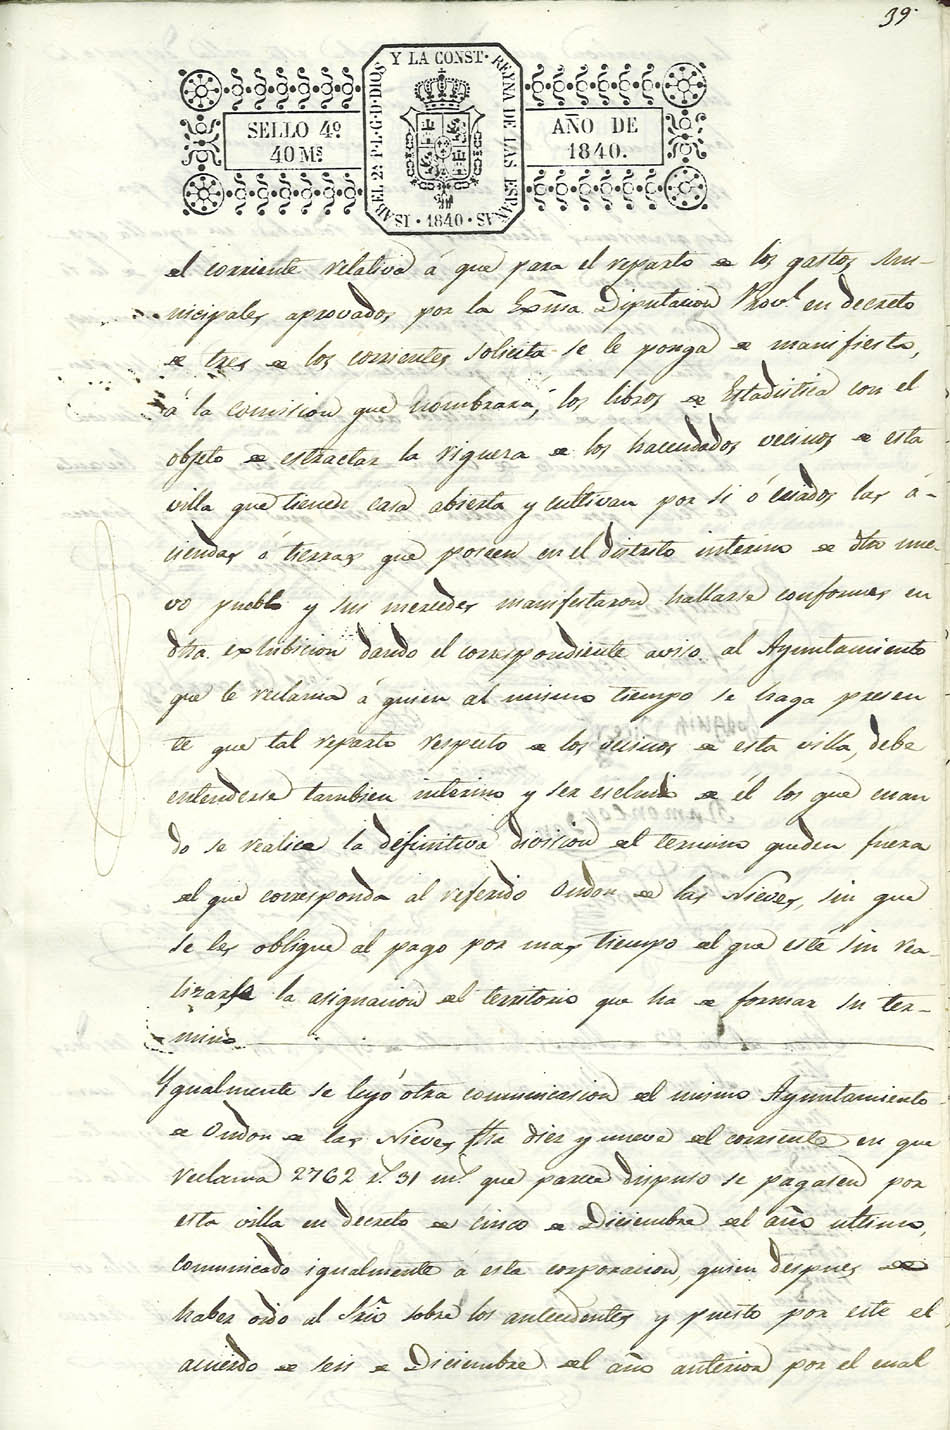 39
Y LA CONST. REYNA DE LAS ESPAÑAS
ISABEL 2ª P.L.G.D.DIOS
SELLO 4º
40 Mˢ
AÑO DE
1840.
1840
el corriente relativa á que para el reparto de los gastos mu-
nicipales aprovados por la Exma Diputacion Provl en decreto
de tres de los corrientes solicita se le ponga de manifiesto,
á la comision que nombrará, los libros de Estadistica con el
objeto de estractar la riguera de los hacendados vecinos de esta
villa que tienen casa abierta y cultivan por si ó criados las á-
ciendas ó tierras que poseen en el distrito interino de dho nue-
vo pueblo y sus mercedes manifestaron hallarse conformes en
dha exhibicion dando el correspondiente aviso al Ayuntamiento
que le reclama á quien al mismo tiempo se haga presen
te que tal reparto respecto de los vecinos de esta villa, debe
entenderse tambien interino y ser escluidos de él los que cuan
do se realice la definitiva division del termino queden fuera
del que corresponda al referido Ondon de las Nieves, sin que
se les obligue al pago por mas tiempo del que esté sin rea-
lizarse la asignacion del territorio que ha de formar su ter-
mino
Ygualmente se leyó otra comunicasion del mismo Ayuntamiento
de Ondon de las Nieves fha diez y nueve del corriente en que
reclama 2762 rˢ 31 mˢ que parece dispuso se pagasen por
esta villa en decreto de cinco de Diciembre del año ultimo,
comunicado igualmente á esta corporacion, quien despues de
haber oido al Srio sobre los antecedentes y puesto por este el
acuerdo de seis de Diciembre del año anterior por el cual